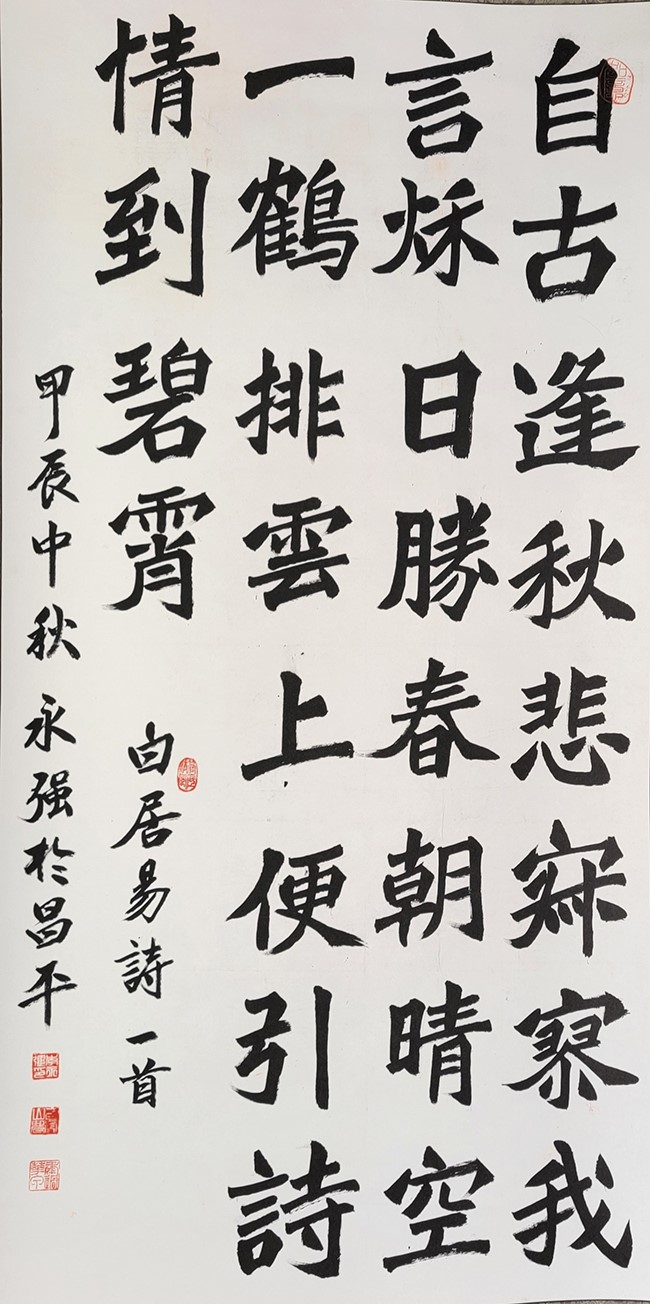 自古逢秋悲寂寥我
言秌日勝春朝晴空
一鶴排雲上便引詩
情到碧霄
白居易詩一首
甲辰中秋永强於昌平